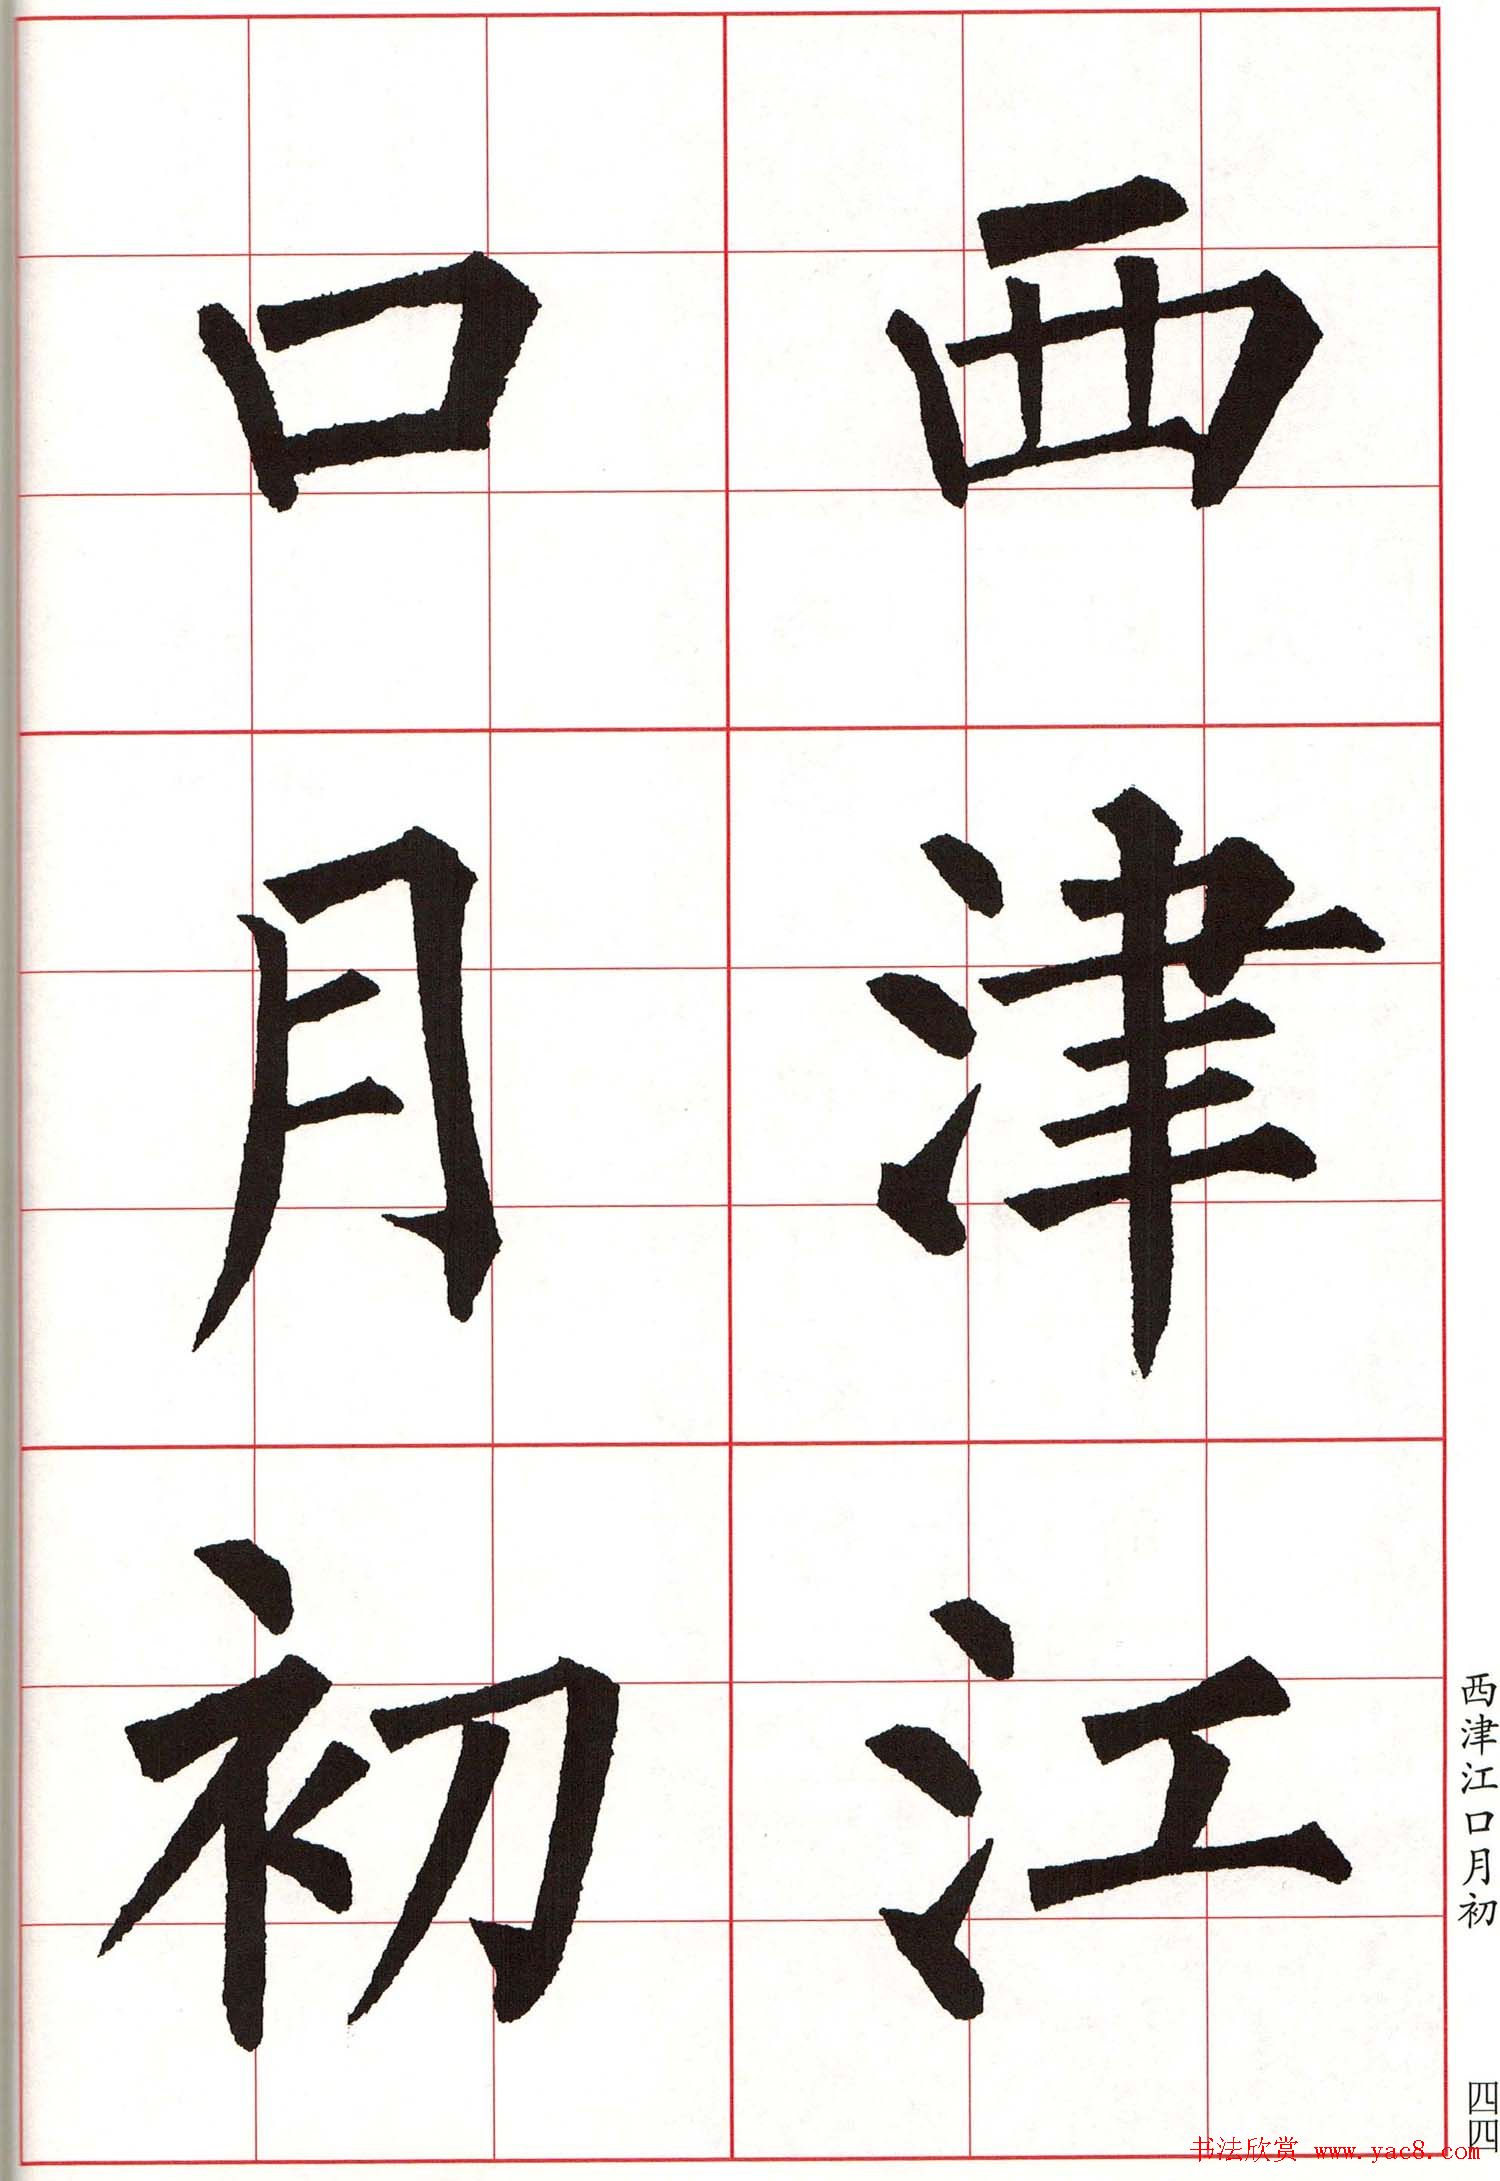 西津江
口月初
西津江口月初
四四
书法欣赏 www.yac8.com